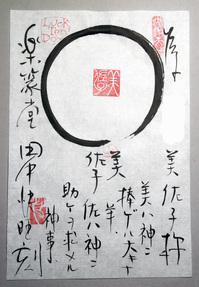 美佐子
美
美ハ神ニ
捧ゲル大キナ
羊
佐
子
佐ハ神ニ
助ケヲ求メル
神事
楽篆堂
田中快旺刻